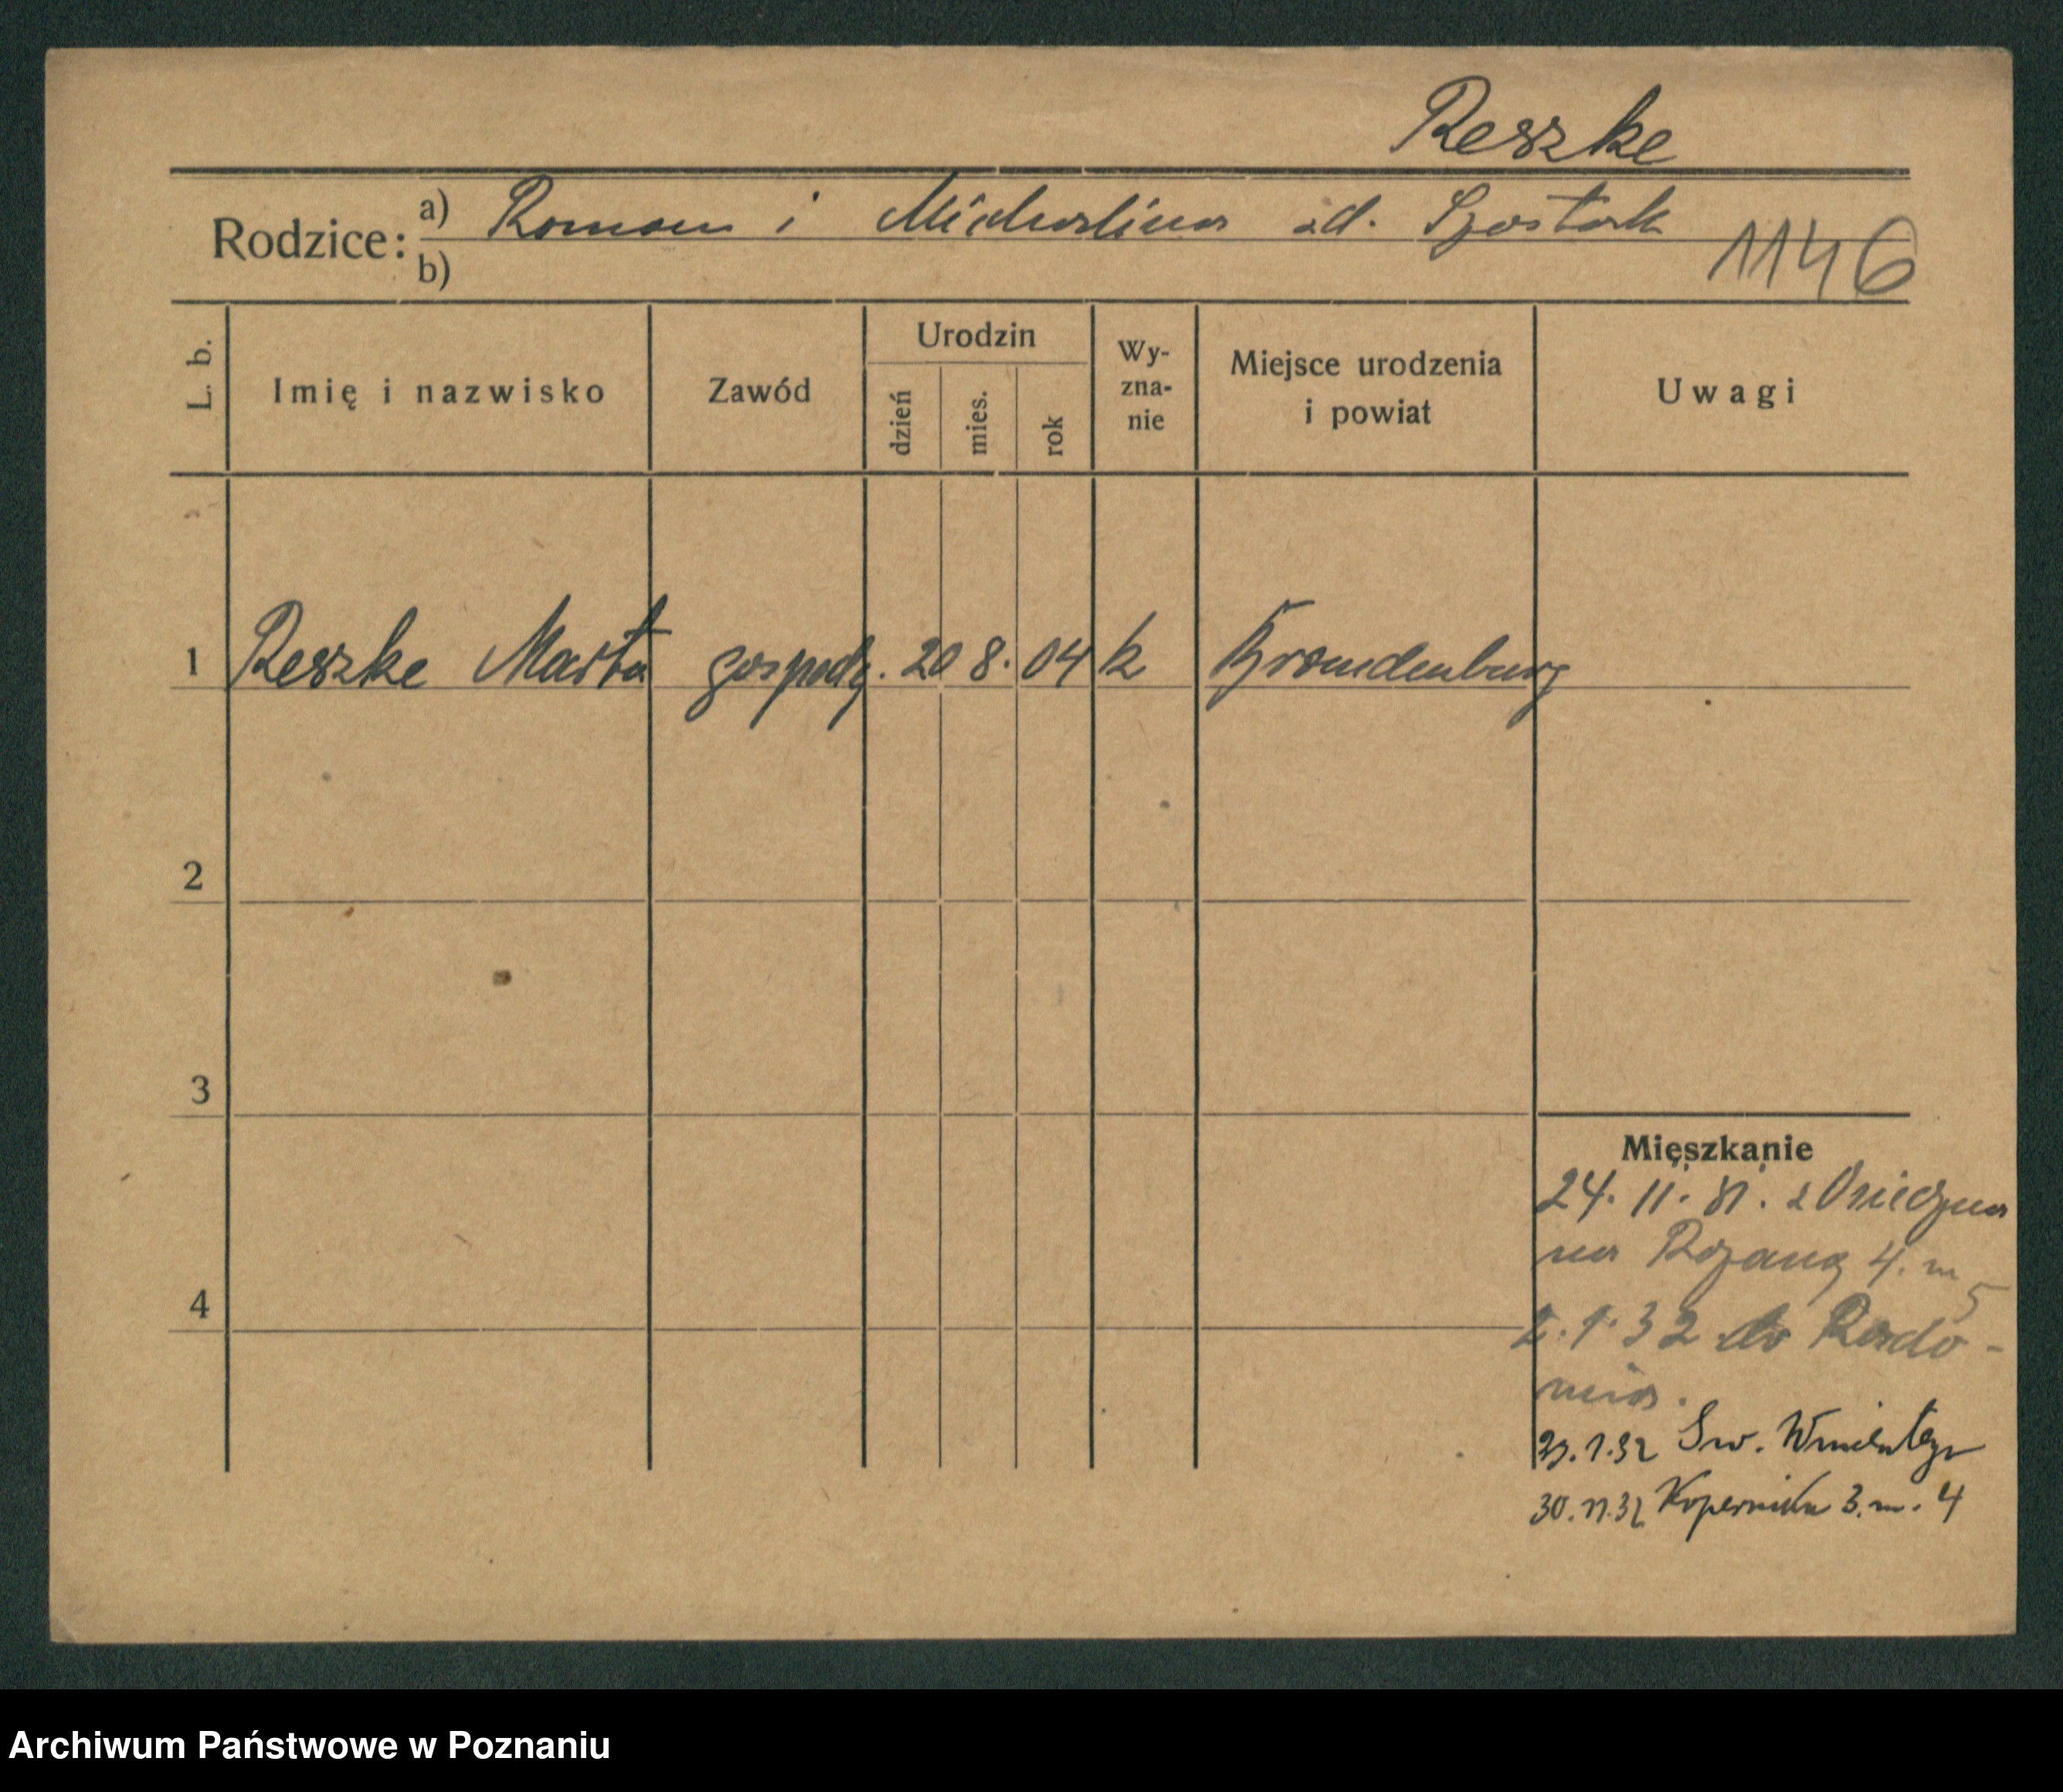 Reszke
Rodzice: a) Roman i Michalina zd. Szostak
b)
1146
L. b.
Imię i nazwisko
Zawód
Urodzin
dzień
mies.
rok
Wy-
zna-
nie
Miejsce urodzenia
i powiat
Uwagi
1 Reszke Marta gospody. 20 8. 04 k Brandenburg
2
3
4
Mieszkanie
24. 11. 31. z Osieczna
na 4. m 5
1. 32 do Rado-
mia.
1.32 Św.
30. 11. 32 Kopernika 3. m. 4
Archiwum Państwowe w Poznaniu